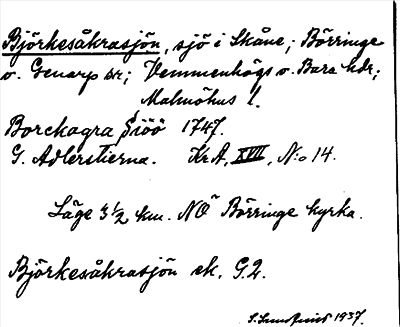 Björkesåkrasjön, sjö i Skåne; Börringe
o. Genarp snr; Vemmenhögs o. Bara hdr;
Malmöhus l.
Borckagra Siöö 1747.
G. Adlerstierna. Kr A, XVII, N:o 14.
Läge 3 1/2 km. NO Börringe kyrka.
Björkesåkrasjön ek. G.2.
1937.